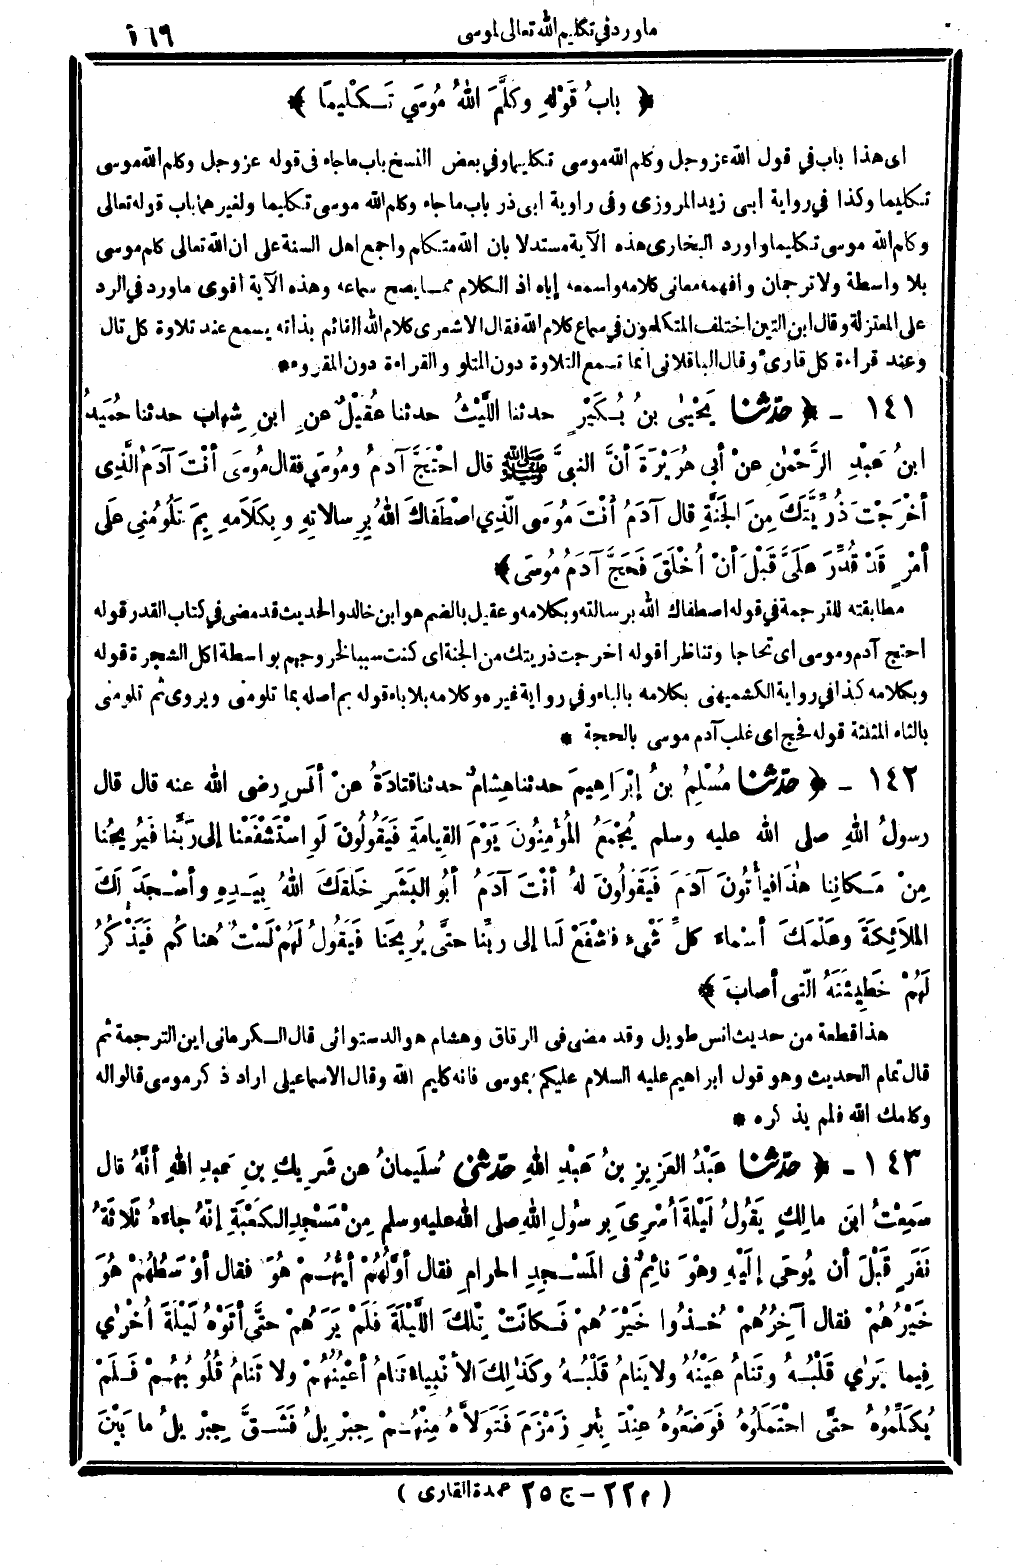 ماورد في تكليم الله تعالى لموسى ١٦٩
﴿ بابُ قَوْلِهِ وكَلَّمَ اللهُ مُوسَي تَـكْـلِيمًا ﴾
اى هذا باب في قول الله عز وجل وكلم الله موسى تكليما وفي بعض النسخ باب ماجاء فى قوله عز وجل وكلم الله موسى
تكليما وكذا في رواية ابى زيد المروزى وفى راوية ابى ذر باب ماجاء وكلم الله موسى تكليما ولغيرهما باب قوله تعالى
وكلم الله موسى تكليما واورد البخارى هذه الآية مستدلا بان الله متكلم واجمع اهل السنة على ان الله تعالى كلم موسى
بلا واسطة ولا ترجمان وافهمه معانى كلامه واسمعه إياه اذ الكلام مما يصح سماعه وهذه الآية اقوى ماورد في الرد
على المعتزلة وقال ابن التين اختلف المتكلمون في سماع كلام الله فقال الاشعرى كلام الله القائم بذاته يسمع عند تلاوة كل تال
وعند قراءة كل قارىء وقال الباقلانى انما تسمع التلاوة دون المتلو والقراءة دون المقروء *
١٤١ - ﴿ حدّثنا يَحْيىٰ بنُ بُـكَيْرٍ حدثنا اللَّيْثُ حدثنا عُقَيْلٌ عنِ ابنِ شِهابٍ حدثنا حُمَيْدُ
ابنُ عَبْدِ الرَّحْمٰنِ عنْ أبي هُرَيْرَةَ أنَّ النبيَّ ﷺ قال احْتَجَّ آدَمُ ومُوسَي فقال مُوسَى أنْتَ آدَمُ الَّذِى
أخْرَجْتَ ذُرِّيَّتَكَ مِنَ الجَنَّةِ قال آدَمُ أنْتَ مُوسَى الَّذِي اصْطَفاكَ اللهُ بِرِسالاتِهِ وبِكَلَامِهِ بِمَ تَلُومُنِي عَلَى
أمْرٍ قَدْ قُدِّرَ عَلَيَّ قَبْلَ أنْ أُخْلَقَ فَحَجَّ آدَمُ مُوسَى ﴾
مطابقته للترجمة في قوله اصطفاك الله برسالته وبكلامه وعقيل بالضم هو ابن خالد والحديث قد مضى في كتاب القدر قوله
احتج آدم وموسى اى تحاجا وتناظرا قوله اخرجت ذريتك من الجنة اى كنت سببا لخروجهم بواسطة اكل الشجرة قوله
وبكلامه كذا في رواية الكشميهنى بكلامه بالباء وفي رواية غيره وكلامه بلاباء قوله بم اصله بما تلومنى ويروى ثم تلومنى
بالثاء المثلثة قوله فحج اى غلب آدم موسى بالحجة *
١٤٢ - ﴿ حدّثنا مُسْلِمُ بنُ إبْرَاهِيمَ حدثنا هِشامٌ حدثنا قَتادَةُ عنْ أنَسٍ رضى الله عنه قال قال
رسولُ اللهِ صلى الله عليه وسلم يُجْمَعُ المُؤْمِنُونَ يَوْمَ القِيامَةِ فَيَقُولُونَ لَوِ اسْتَشْفَعْنا إلى رَبِّنا فَيُرِيحُنا
مِنْ مَـكانِنا هٰذا فَيأْتُونَ آدَمَ فَيَقُولُونَ لهُ أنْتَ آدَمُ أبُو البَشَرِ خَلَقَكَ اللهُ بِيَدِهِ وأسْجَدَ لَكَ
المَلاَئِكَةَ وعَلَّمَكَ أسْماءَ كلِّ شَيْءٍ فاشْفَعْ لَنا إلى رَبِّنا حتَّى يُرِيحَنا فَيَقُولُ لَهُمْ لَسْتُ هُناكُمْ فَيَذْكُرُ
لَهُمْ خَطِيئَتَهُ الّتى أصابَ ﴾
هذا قطعة من حديث انس طويل وقد مضى فى الرقاق وهشام هو الدستوائى قال الكرمانى اين الترجمة ثم
قال تمام الحديث وهو قول ابراهيم عليه السلام عليكم بموسى فانه كليم الله وقال الاسماعيلى اراد ذكر موسى قالوا له
وكلمك الله فلم يذكره *
١٤٣ - ﴿ حدّثنا عَبْدُ العَزِيزِ بنُ عَبْدِ اللهِ حدّثنى سُلَيمانُ عن شَرِيكِ بنِ عبدِ اللهِ أنَّهُ قال
سَمِعْتُ ابنَ مالِكٍ يَقُولُ لَيْلَةَ أُسْرِيَ بِرسُولِ اللهِ صلى الله عليه وسلم مِنْ مَسْجِدِ الكَعْبَةِ إنّهُ جاءهُ ثَلاثَةُ
نَفَرٍ قَبْلَ أن يُوحَى إلَيْهِ وهْوَ نائِمٌ فى المَسْجِدِ الحرامِ فقال أوَّلُهُمْ أيُّهُـمْ هُوَ فقال أوْسَطُهُمْ هُوَ
خَيْرُهُمْ فقال آخِرُهُمْ خُـذُوا خَيْرَهُمْ فَـكانَتْ تِلْكَ اللَّيْلَةَ فَلَمْ يَرَهُمْ حتَّى أتَوْهُ لَيْلَةً أُخْرَى
فِيما يَرَى قَلْبُـهُ وتَنامُ عَيْنُهُ ولا يَنامُ قَلْبُـهُ وكَذٰلِكَ الأنْبِياءُ تَنامُ أعْيُنُهُمْ ولا تَنامُ قُلُوبُهُـمْ فَـلَمْ
يُكَلِّمُوهُ حتَّى احْتَمَلُوهُ فَوَضَعُوهُ عِنْدَ بِئْرِ زَمْزَمَ فَتَوَلاَّهُ مِنْهُـمْ جِبْرِيلُ فَشَـقَّ جِبْرِيلُ ما بَيْنَ
( م ٢٢ - ج ٢٥ عمدة القارى )